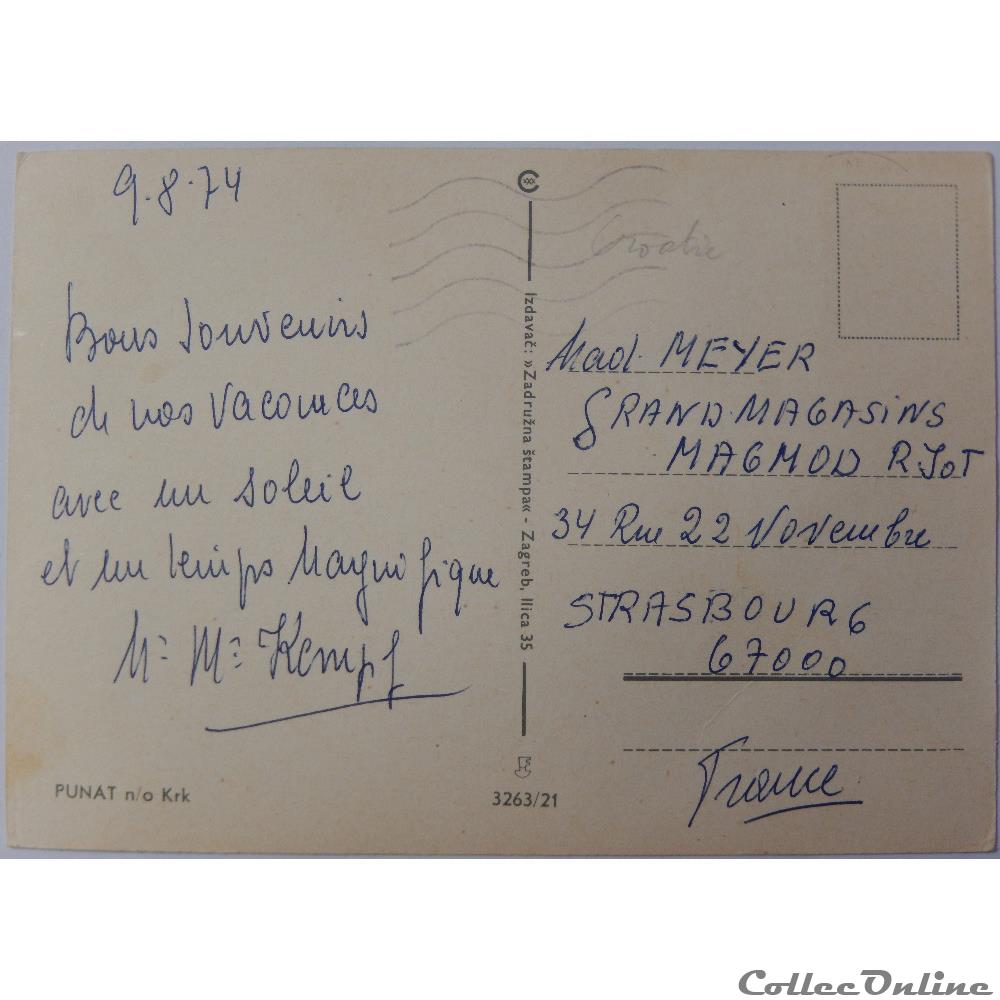 9.8.74
Bons Souvenirs
de nos vacances
avec un soleil
et un temps Magnifique
Mr Me Kempf
PUNAT n/o Krk
Izdavač: »Zadružna štampa« - Zagreb, Ilica 35
3263/21
Croatie
Mad. MEYER
GRAND.MAGASiNS
MAGMOD
34 Rue 22 Novembre
STRASBOURG
67000
France
CollecOnline